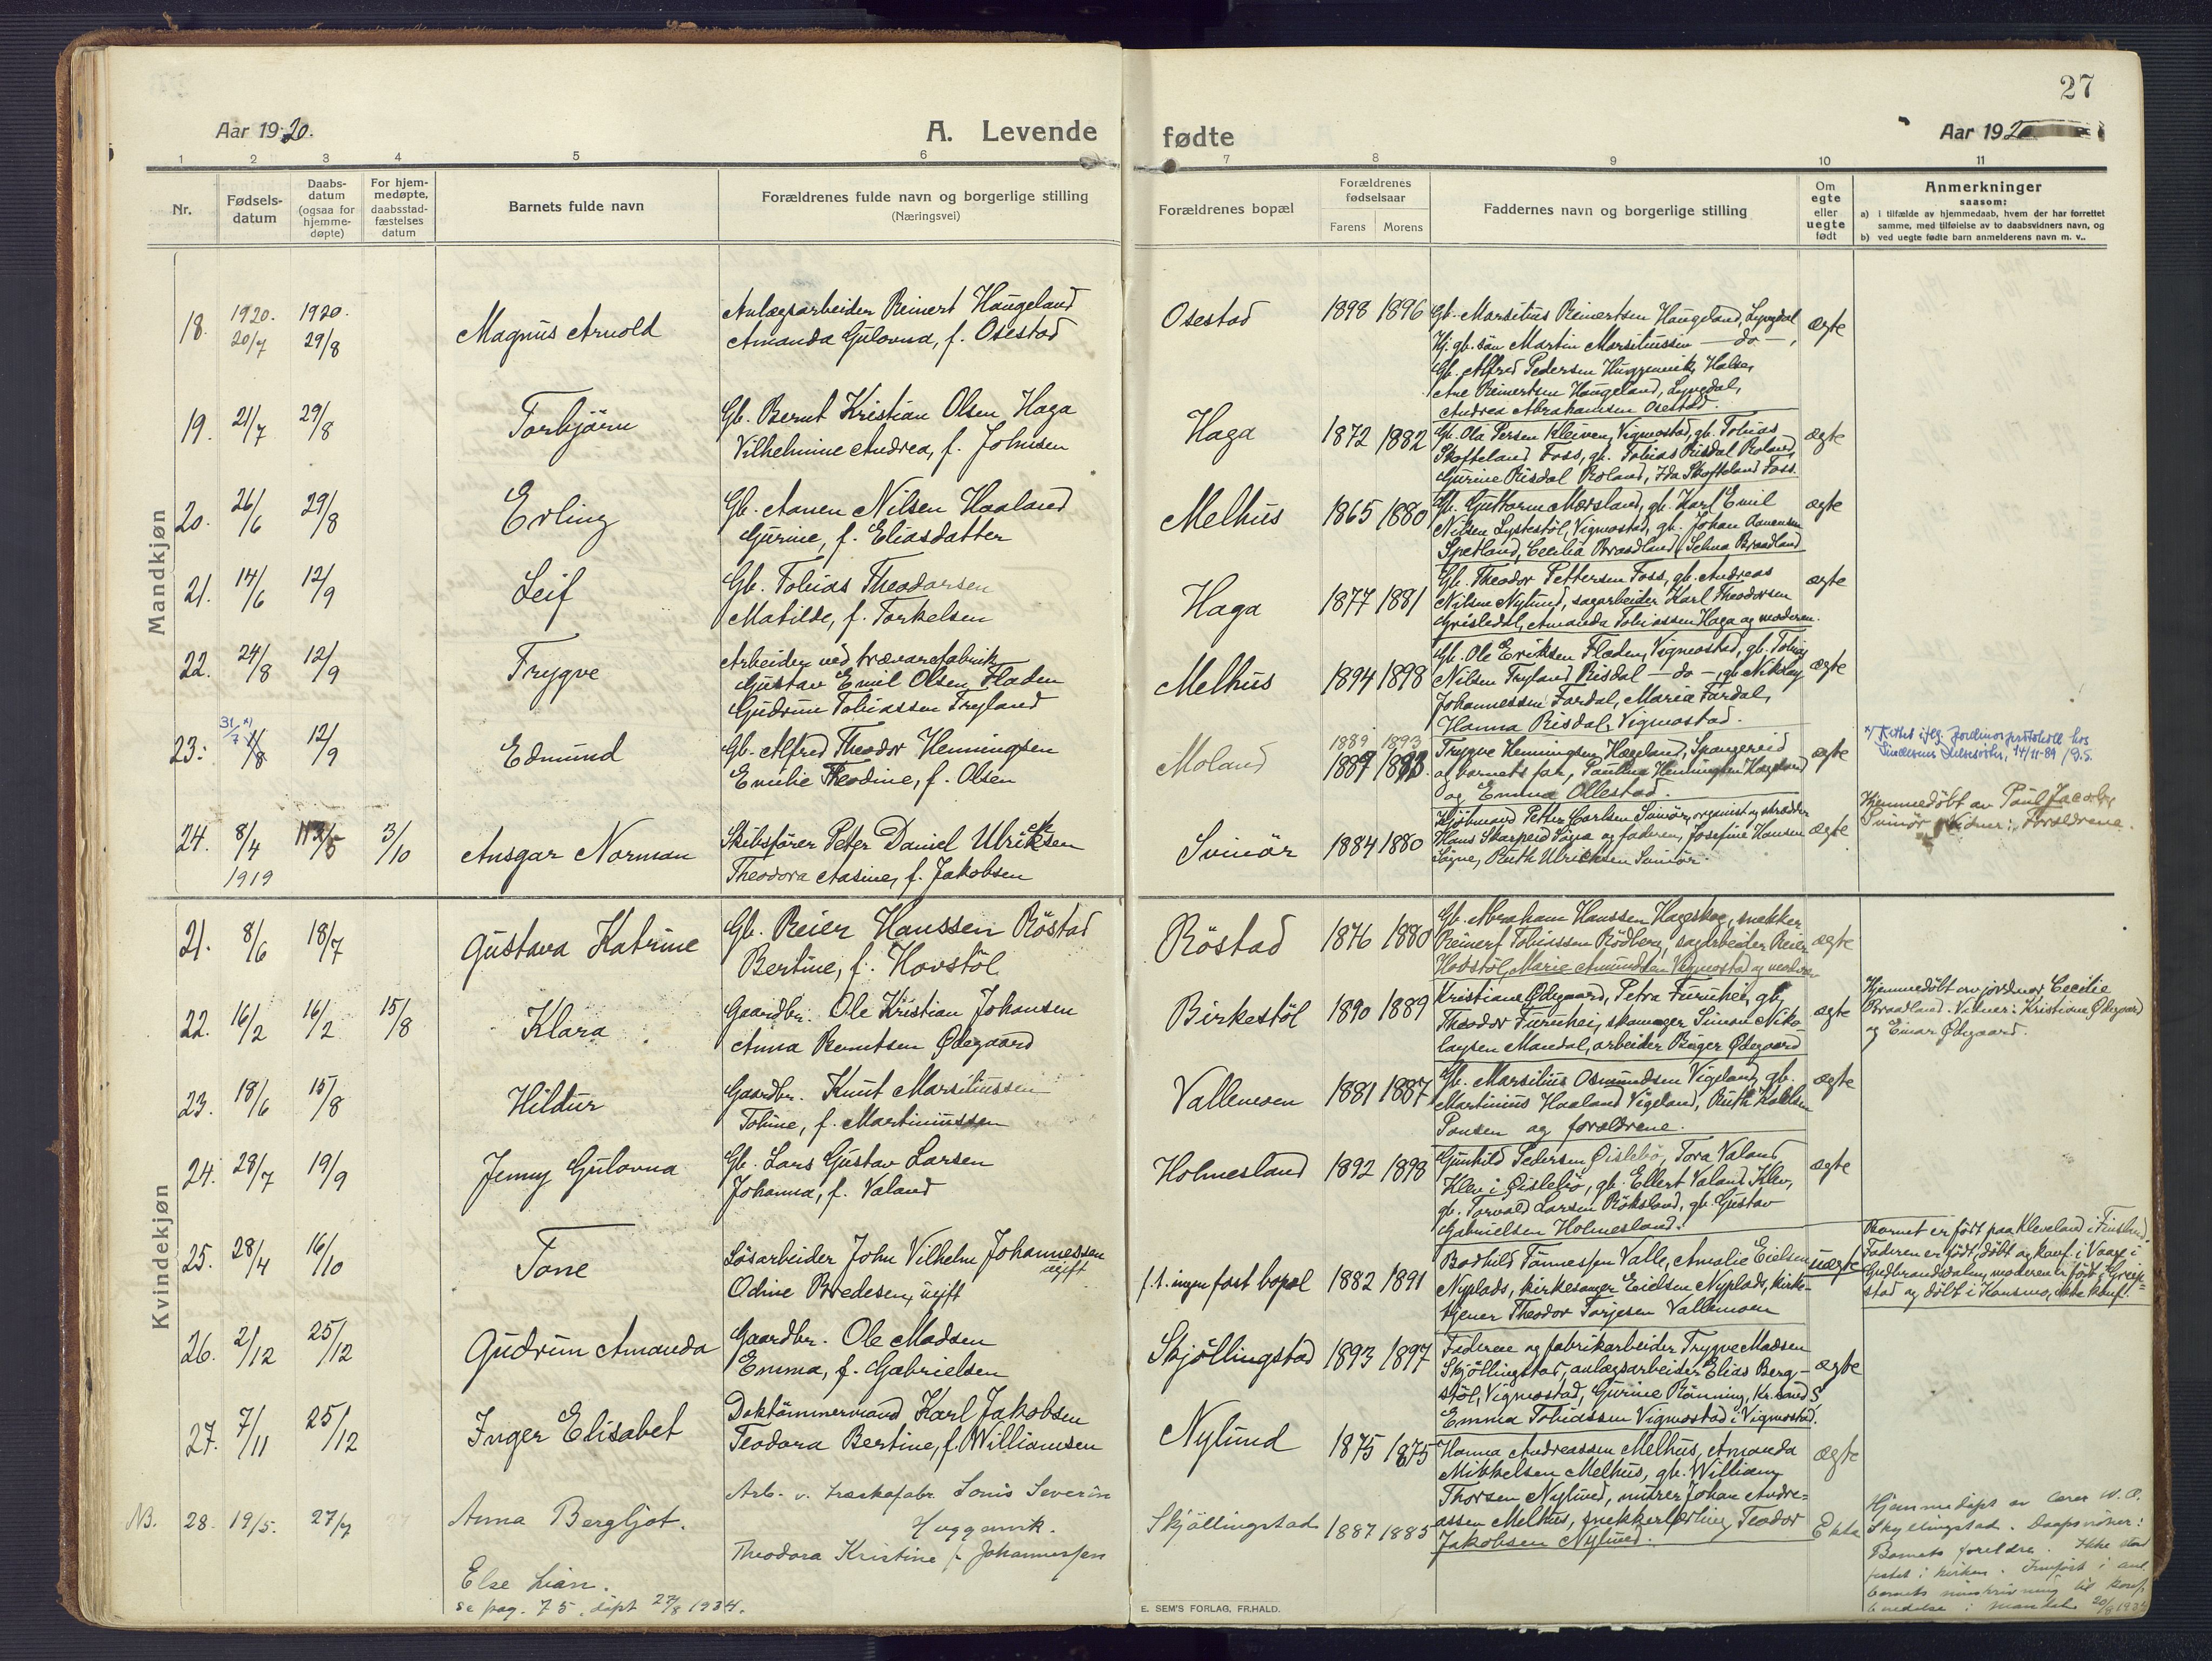 27
Aar 1920.
A. Levende
fødte
Aar 192
1 2 3 4 5 6 7 8 9 10 11
Nr.
Fødsels-
datum
Daabs-
datum
(ogsaa for
hjemme-
døpte)
For hjem-
medøpte,
daabsstad-
fæstelses
datum
Barnets fulde navn
Forældrenes fulde navn og borgerlige stilling
(Næringsvei)
Forældrenes bopæl
Forældrenes
fødselsaar
Farens Morens
Faddernes navn og borgerlige stilling
Om
egte
eller
uegte
født
Anmerkninger
saasom:
a) i tilfælde av hjemmedaab, hvem der har forrettet
samme, med tilføielse av to daabsvidners navn, og
b) ved uegte fødte barn anmelderens navn m. v..
Mandkjøn
18. 1920. 20/7 1920. 29/8 Magnus Arnold
Anlægsarbeider Reinert Haugeland
Amanda Gulovna, f. Osestad
Osestad 1898 1896
Gb. Marsilius Reinertsen Haugeland, Lyngdal
Hj. gb. søn Martin Marsiliussen — do —,
Gb. Alfred Pedersen Huggenvik, Halse,
Ane Reinertsen Haugeland, Lyngdal,
Andrea Abrahamsen Osestad.
ægte
19. 21/7 29/8 Torbjørn
Gb. Bernt Kristian Olsen Haga
Vilhelmine Andrea, f. Johnsen
Haga 1872 1882
Gb. Ola Persen Kleiven, Vigmostad, gb. Tobias
Skofteland Foss, gb. Tobias Risdal Roland,
Gurine Risdal Roland, Ida Skofteland Foss.
ægte
20. 26/6 29/8 Erling
Gb. Aanen Nilsen Haaland
Gurine, f. Eliasdatter
Melhus 1865 1880
Gb. Guttorm Mærsland, gb. Karl Emil
Nilsen Lystestøl, Vigmostad, gb. Johan Aanensen
Spetland, Cecilia Braadland, Selma Braadland
ægte
21. 14/6 12/9 Leif
Gb. Tobias Theodorsen
Matilde, f. Torkelsen
Haga 1877 1881
Gb. Theodor Pettersen Foss, gb. Andreas
Nilsen Nylund, sagarbeider Karl Theodorsen
Grisledal, Amanda Tobiassen Haga og moderen.
ægte
22. 24/8 12/9 Trygve
Arbeider ved trævarefabrik
Gustav Emil Olsen Fladen
Gudrun Tobiassen Tryland
Melhus 1894 1898
Gb. Ole Eriksen Fladen, Vigmostad, gb. Tobias
Nilsen Tryland Risdal — do —, gb. Nikolay
Johannessen Fardal, Maria Fardal,
Hanna Risdal, Vigmostad.
ægte
23. 31/7 x) 1/8 12/9 Edmund
Gb. Alfred Theodor Henningsen
Emilie Theodine, f. Olsen
Moland 1889 1893
1889 1893
Trygve Henningsen Hageland, Spangereid
og barnets far, Paulina Henningsen Hageland
og Emma Ollestad.
ægte
x) Rettet iflg. jordmorprotokoll hos
Lindesnes helsesøster, 14/11-89 /B.S.
24. 8/4 1919 3/10 Ansgar Norman
Skibsfører Peter Daniel Ulriksen
Theodora Aasine, f. Jakobsen
Svinør 1884 1880
Petter Carlsen Svinør, organist og skrædder
Hans Skarpeid Søgne og faderen, Josefine Hansen
Søgne, Ruth Ulriksen Svinør.
ægte
Hjemmedøbt av Paul Jacobs
Svinør. Vidner: Forældrene.
Kvindekjøn
21. 8/6 18/7 Gustava Katrine
Gb. Reier Hanssen Røstad
Bertine, f. Hovstøl
Røstad 1876 1880
Gb. Abraham Hanssen Hageskog, snekker
Reinert Tobiassen Rødberg, sagarbeider Reier
Hovstøl, Marie Amundsen Vigmostad og moderen
ægte
22. 16/2 16/2 15/8 Klara
Gaardbr. Ole Kristian Johansen
Anna Berntsen Ødegaard
Birkestøl 1890 1889
Kristiane Ødegaard, Petra Furuhei, gb.
Theodor Furuhei, skomager Simon Niko-
laysen Mandal, arbeider Birger Ødegaard
ægte
Hjemmedøbt av jordmor Cecilie
Braadland. Vidner: Kristiane Ødegaard
og Einar Ødegaard.
23. 18/6 15/8 Hildur
Gaardbr. Knut Marsiliussen
Toline, f. Martiniussen
Vallemoen 1881 1887
Gb. Marsilius Osmundsen Vigeland, gb.
Martinius Haaland Vigeland, Ruth
og forældrene.
ægte
24. 28/7 19/9 Jenny Gulovna
Gb. Lars Gustav Larsen
Johanna, f. Valand
Holmesland 1892 1898
Gunhild Pedersen Øislebø, Tora Valand
Klev i Øislebø, gb. Ellert Valand Klev,
gb. Torvald Larsen Røksland, gb. Gustav
Gabrielsen Holmesland.
ægte
25. 28/4 16/10 Tone
Løsarbeider John Vilhelm Johannessen
ugift
Odine Bredesen, ugift
f. t. ingen fast bopæl 1882 1891
Bodhild Tønnessen Valle, Amalie Eielsen
Nyplads, kirkesanger Eielsen Nyplads, kirke-
tjener Theodor Torjesen Vallemoen
uægte
Barnet er født paa Kleveland i Finsland.
Faderen er født, døbt og konf. i Vaage i
Gudbrandsdalen, moderen er født i Greip-
stad og døbt i Hansmo, ikke konf.
26. 2/12 25/12 Gudrun Amanda
Gaardbr. Ole Madsen
Emma, f. Gabrielsen
Skjøllingstad 1893 1897
Faderen og fabrikarbeider Trygve Madsen
Skjøllingstad, anlægsarbeider Elias Berg-
støl, Vigmostad, Gurine Rønning, Kr.sand S,
Emma Tobiassen Vigmostad i Vigmostad.
ægte
27. 7/11 25/12 Inger Elisabet
Doktømmermand Karl Jakobsen
Teodora Bertine, f. Williamsen
Nylund 1875 1875
Hanna Andreassen Melhus, Amanda
Mikkelsen Melhus, gb. William
Thorsen Nylund, murer Johan Andre-
assen Melhus, snekkerlærling Teodor
Jakobsen Nylund.
ægte
NB. 28. 19/5. 27/7 Anna Bergljot.
Arb. v. træskofabr. Louis Severin
Huggenvik.
Theodora Kristine f. Johannessen
Skjøllingstad 1887 1885
Ekte
Hjemmedøpt av lærer W. O.
Skjellingstad. Daapsvidner:
Barnets foreldre. Ikke stad
festet i kirken. Innført i anl.
barnets innskrivning til konf.
beredelse i Mandal 20/8 1934
Else Lian.
se pag. 75, døpt 27/8 1934.
E. SEM'S FORLAG, FR.HALD.